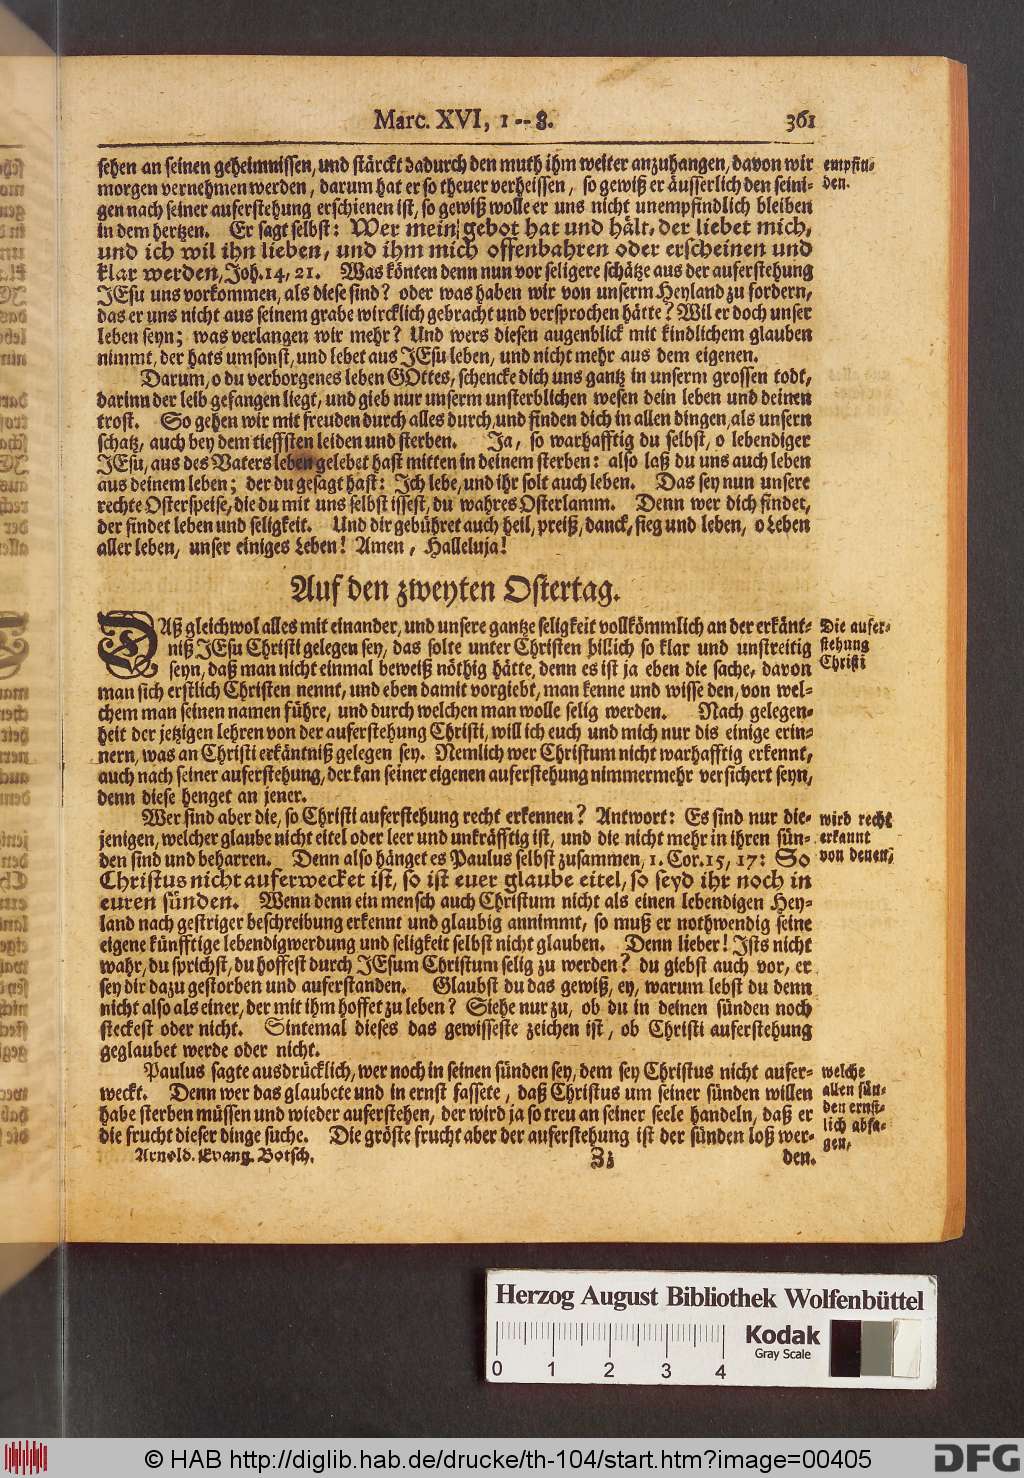 Marc. XVI, 1--8. 361
sehen an seinen geheimnissen, und stärckt dadurch den muth ihm weiter anzuhangen, davon wir
morgen vernehmen werden, darum hat er so theuer verheissen, so gewiß er äusserlich den seini-
gen nach seiner auferstehung erschienen ist, so gewiß wolle er uns nicht unempfindlich bleiben
in dem hertzen. Er sagt selbst: Wer mein gebot hat und hält, der liebet mich,
und ich wil ihn lieben, und ihm mich offenbahren oder erscheinen und
klar werden, Joh. 14, 21. Was könten denn nun vor seligere schätze aus der auferstehung
JEsu uns vorkommen, als diese sind? oder was haben wir von unserm Heyland zu fordern,
das er uns nicht aus seinem grabe wircklich gebracht und versprochen hätte? Wil er doch unser
leben seyn; was verlangen wir mehr? Und wers diesen augenblick mit kindlichem glauben
nimmt, der hats umsonst, und lebet aus JEsu leben, und nicht mehr aus dem eigenen.
empfin-
den.
Darum, o du verborgenes leben GOttes, schencke dich uns gantz in unserm grossen todt,
darinn der leib gefangen liegt, und gieb nur unserm unsterblichen wesen dein leben und deinen
trost. So gehen wir mit freuden durch alles durch, und finden dich in allen dingen, als unsern
schatz, auch bey dem tieffsten leiden und sterben. Ja, so warhafftig du selbst, o lebendiger
JEsu, aus des Vaters leben gelebet hast mitten in deinem sterben: also laß du uns auch leben
aus deinem leben; der du gesagt hast: Ich lebe, und ihr solt auch leben. Das sey nun unsere
rechte Osterspeise, die du mit uns selbst issest, du wahres Osterlamm. Denn wer dich findet,
der findet leben und seligkeit. Und dir gebühret auch heil, preiß, danck, sieg und leben, o Leben
aller leben, unser einiges Leben! Amen, Halleluja!
Auf den zweyten Ostertag.
DAß gleichwol alles mit einander, und unsere gantze seligkeit vollkömmlich an der erkänt-
niß JEsu Christi gelegen sey, das solte unter Christen billich so klar und unstreitig
seyn, daß man nicht einmal beweiß nöthig hätte, denn es ist ja eben die sache, davon
man sich erstlich Christen nennt, und eben damit vorgiebt, man kenne und wisse den, von wel-
chem man seinen namen führe, und durch welchen man wolle selig werden. Nach gelegen-
heit der jetzigen lehren von der auferstehung Christi, will ich euch und mich nur dis einige erin-
nern, was an Christi erkäntniß gelegen sey. Nemlich wer Christum nicht warhafftig erkennt,
auch nach seiner auferstehung, der kan seiner eigenen auferstehung nimmermehr versichert seyn,
denn diese henget an jener.
Die aufer-
stehung
Christi
Wer sind aber die, so Christi auferstehung recht erkennen? Antwort: Es sind nur die-
jenigen, welcher glaube nicht eitel oder leer und unkräfftig ist, und die nicht mehr in ihren sün-
den sind und beharren. Denn also hänget es Paulus selbst zusammen, 1. Cor. 15, 17: So
Christus nicht auferwecket ist, so ist euer glaube eitel, so seyd ihr noch in
euren sünden. Wenn denn ein mensch auch Christum nicht als einen lebendigen Hey-
land nach gestriger beschreibung erkennt und glaubig annimmt, so muß er nothwendig seine
eigene künfftige lebendigwerdung und seligkeit selbst nicht glauben. Denn lieber! Ists nicht
wahr, du sprichst, du hoffest durch JEsum Christum selig zu werden? du giebst auch vor, er
sey dir dazu gestorben und auferstanden. Glaubst du das gewiß, ey, warum lebst du denn
nicht also als einer, der mit ihm hoffet zu leben? Siehe nur zu, ob du in deinen sünden noch
steckest oder nicht. Sintemal dieses das gewisseste zeichen ist, ob Christi auferstehung
geglaubet werde oder nicht.
wird recht
erkannt
von denen,
Paulus sagte ausdrücklich, wer noch in seinen sünden sey, dem sey Christus nicht aufer-
weckt. Denn wer das glaubete und in ernst fassete, daß Christus um seiner sünden willen
habe sterben müssen und wieder auferstehen, der wird ja so treu an seiner seele handeln, daß er
die frucht dieser dinge suche. Die gröste frucht aber der auferstehung ist der sünden loß wer-
welche
allen sün-
den ernst-
lich absa-
gen,
Arnold. Evang. Botsch. Zz den.
Herzog August Bibliothek Wolfenbüttel
Kodak
Gray Scale
0 1 2 3 4
© HAB http://diglib.hab.de/drucke/th-104/start.htm?image=00405
DFG